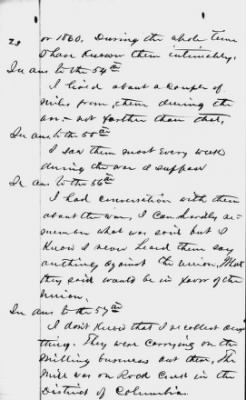 29 or 1860. During the whole time
I have known them intimately.
In ans to the 54th
I lived about a couple of
miles from them during the
war - not farther than that.
In ans to the 55th
I saw them most every week
during the war I suppose
In ans to the 56th
I had conversation with them
about the war, I can hardly re-
member what was said but I
know I never heard them say
anything against the Union, What
they said would be in favor of the
Union.
In ans to the 57th
I don't know that I recollect any
thing. They were carrying on the
Milling business out there, The
Mill was on Rock Creek in the
District of Columbia